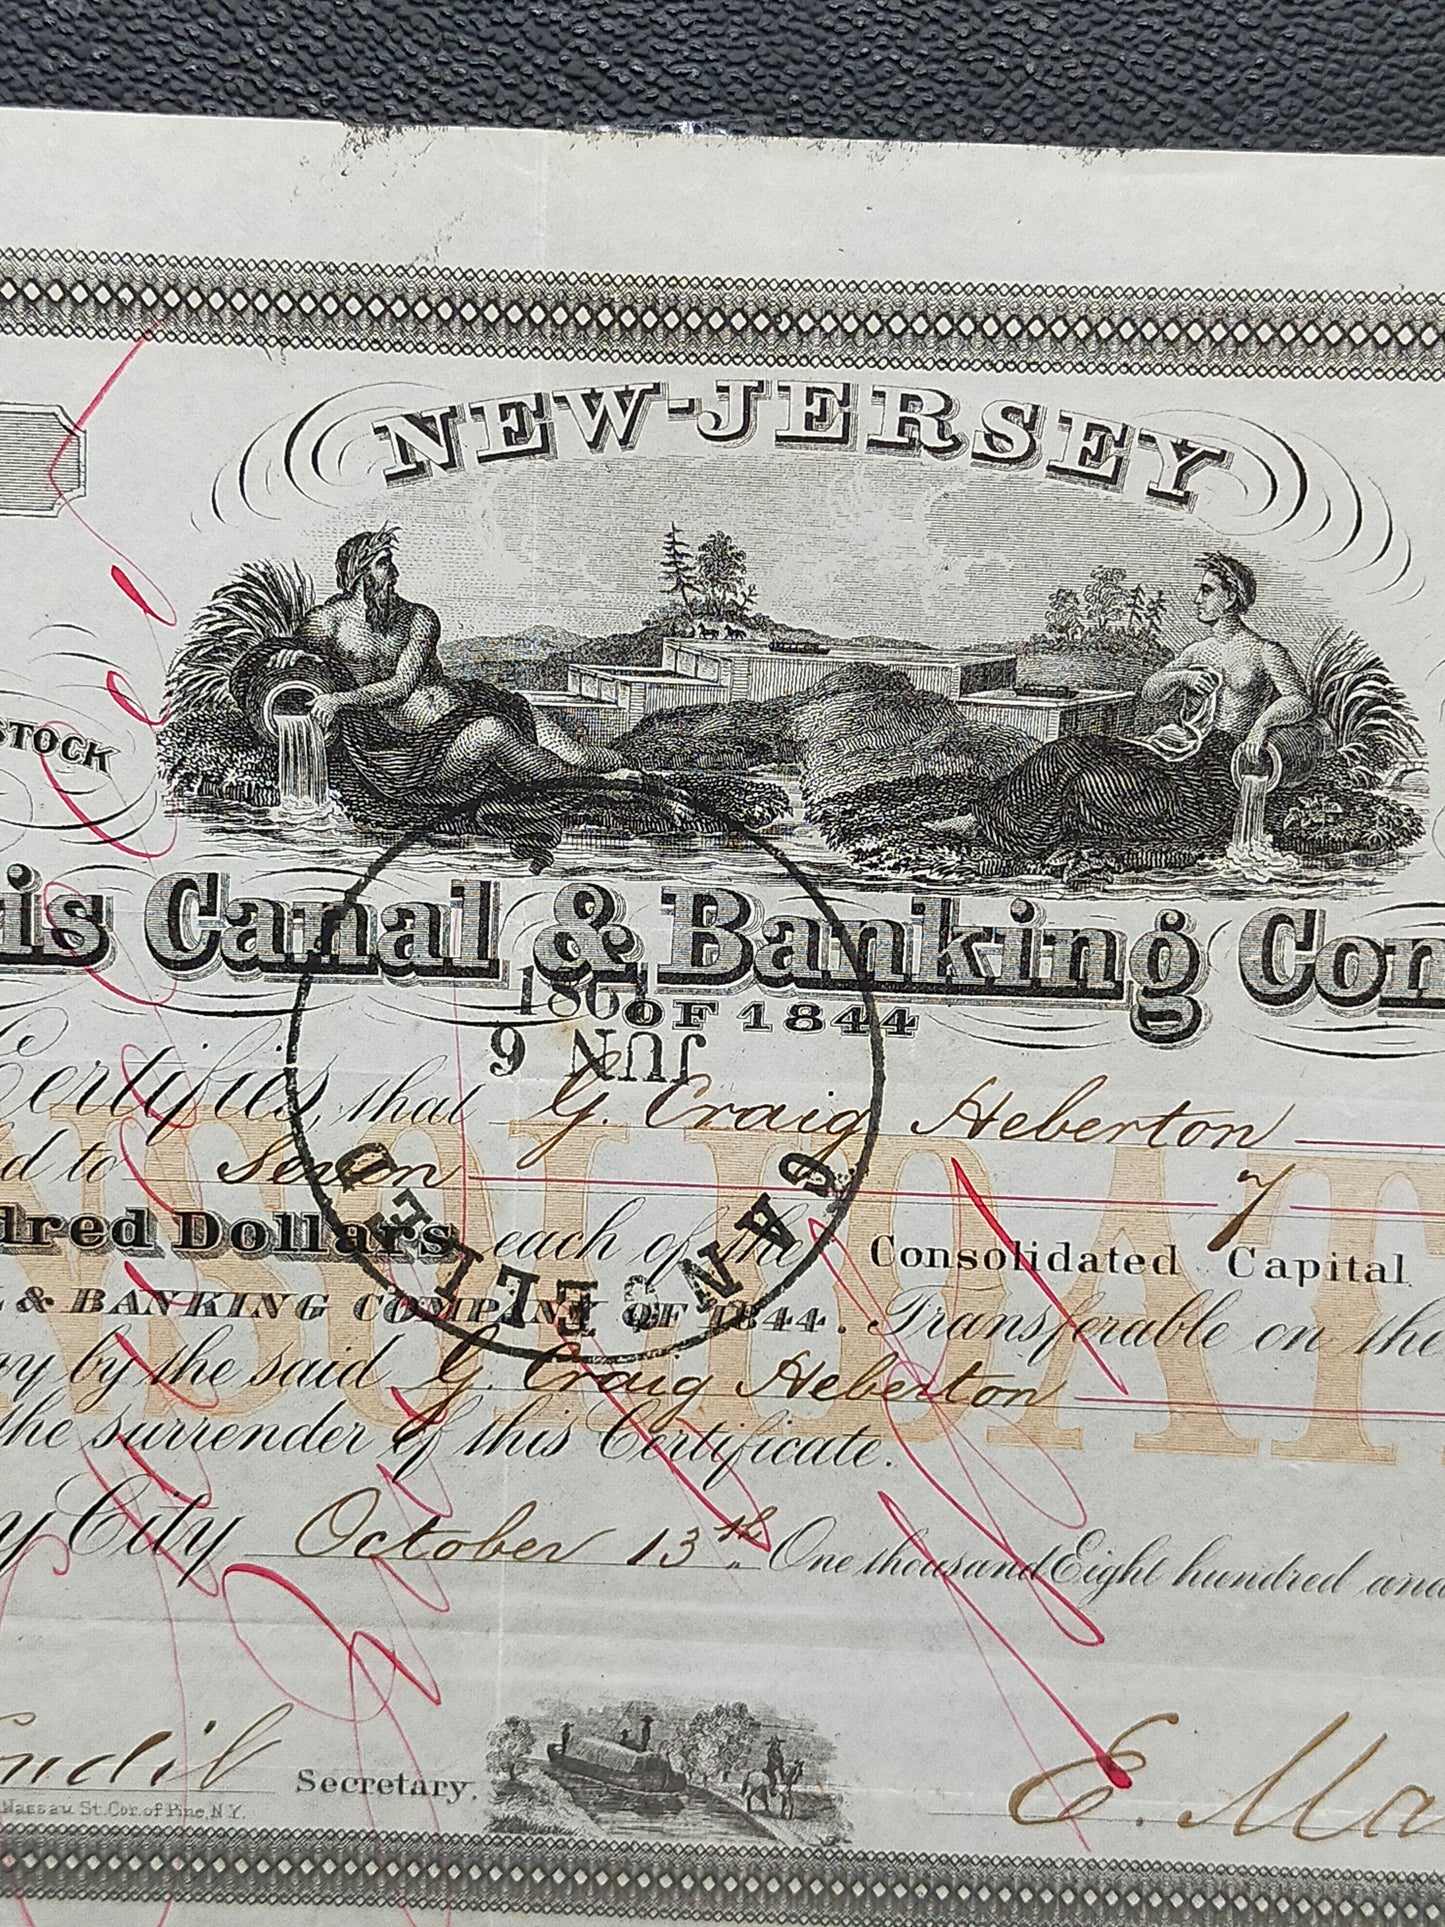 NEW-JERSEY
STOCK
ris Canal & Banking Com
OF 1844
Certifies, that G. Craig Heberton
d to Seven
dred Dollars each of the Consolidated Capital
L & BANKING COMPANY OF 1844. Transferable on the
by the said G. Craig Heberton
the surrender of this Certificate.
y City October 13th One thousand Eight hundred and
Secretary. E. Ma
Nassau St. Cor. of Pine, N.Y.
CANCELLED
JUN 9